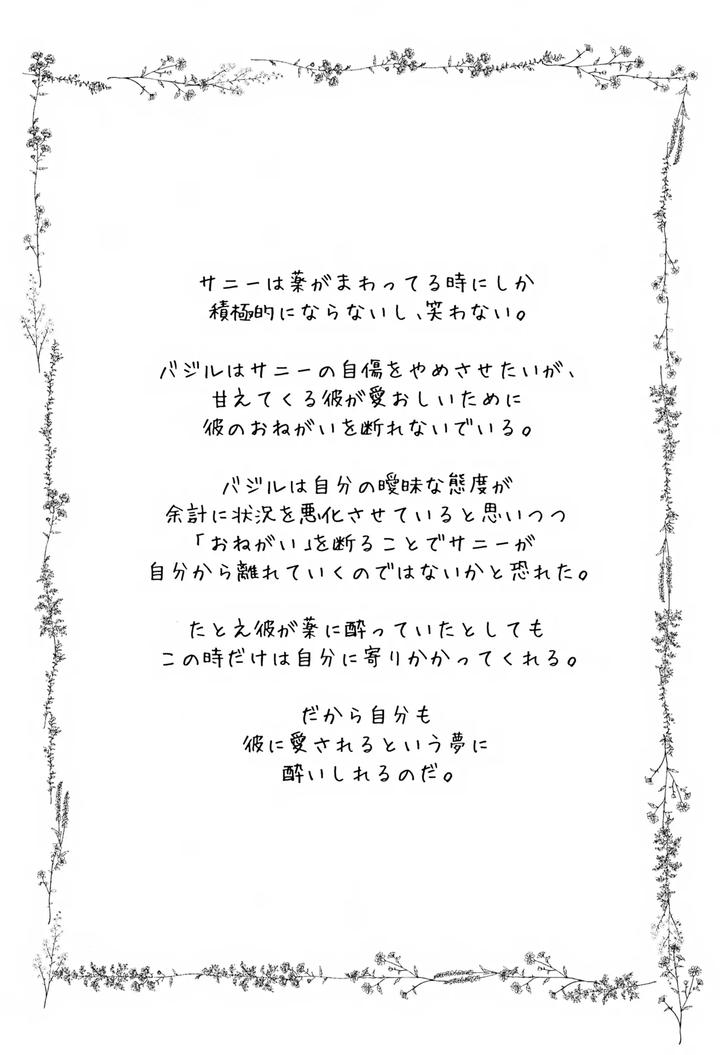 サニーは薬がまわってる時にしか
積極的にならないし、笑わない。
バジルはサニーの自傷をやめさせたいが、
甘えてくる彼が愛おしいために
彼のおねがいを断れないでいる。
バジルは自分の曖昧な態度が
余計に状況を悪化させていると思いつつ
「おねがい」を断ることでサニーが
自分から離れていくのではないかと恐れた。
たとえ彼が薬に酔っていたとしても
この時だけは自分に寄りかかってくれる。
だから自分も
彼に愛されるという夢に
酔いしれるのだ。